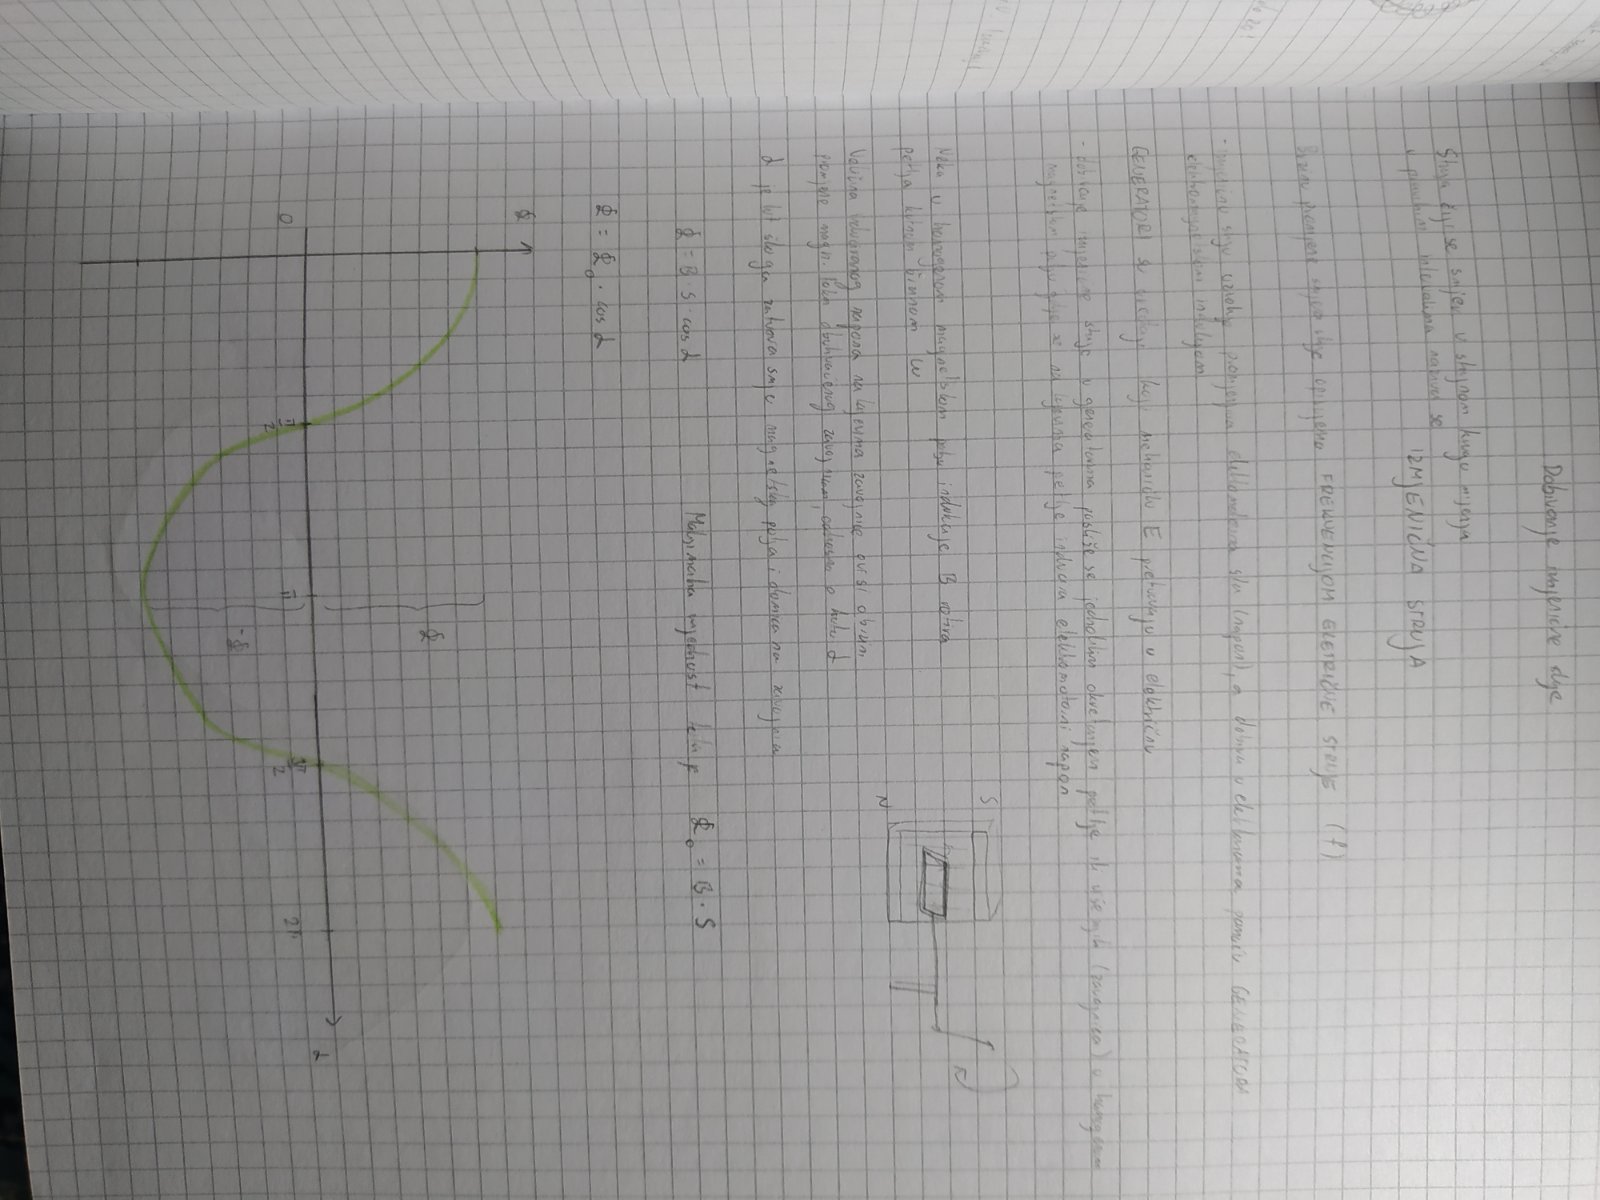 Dobivanje izmjenične struje
Struja čiji se smjer u strujnom krugu mijenja
u pravilnim intervalima naziva se
IZMJENIČNA STRUJA
Brzinu promjene smjera struje opisujemo FREKVENCIJOM ELETRIČNE STRUJE (f)
- izmjeničnu struju uzrokuje promjenjiva elektromotorna sila (napon), a dobiva u elektranama pomoću GENERATORA
elektromagnetskom indukcijom
GENERATORI su uređaji koji mehaničku E pretvaraju u električnu
- dobivanje izmjenične struje u generatorima postiže se jednolikim okretanjem petlje ili više njih (zavojnica) u homogenom
magnetskom polju gdje se na krajevima petlje inducira elektromotorni napon
S
Neka u homogenom magnetskom polju indukcije B rotira
petlja kutnom brzinom ω
N
Veličina induciranog napona na krajevima zavojnice ovisi o brzini
promjene magn. toka obuhvaćenog zavojnicom, odnosno o kutu α
α je kut što ga zatvara smjer magnetskog polja i okomica na zavojnicu
Φ = B · S · cos α
Maksimalna vrijednost toka je Φ₀ = B · S
Φ = Φ₀ · cos α
Φ
Φ
0
π/2
π
3π/2
2π
α
-Φ